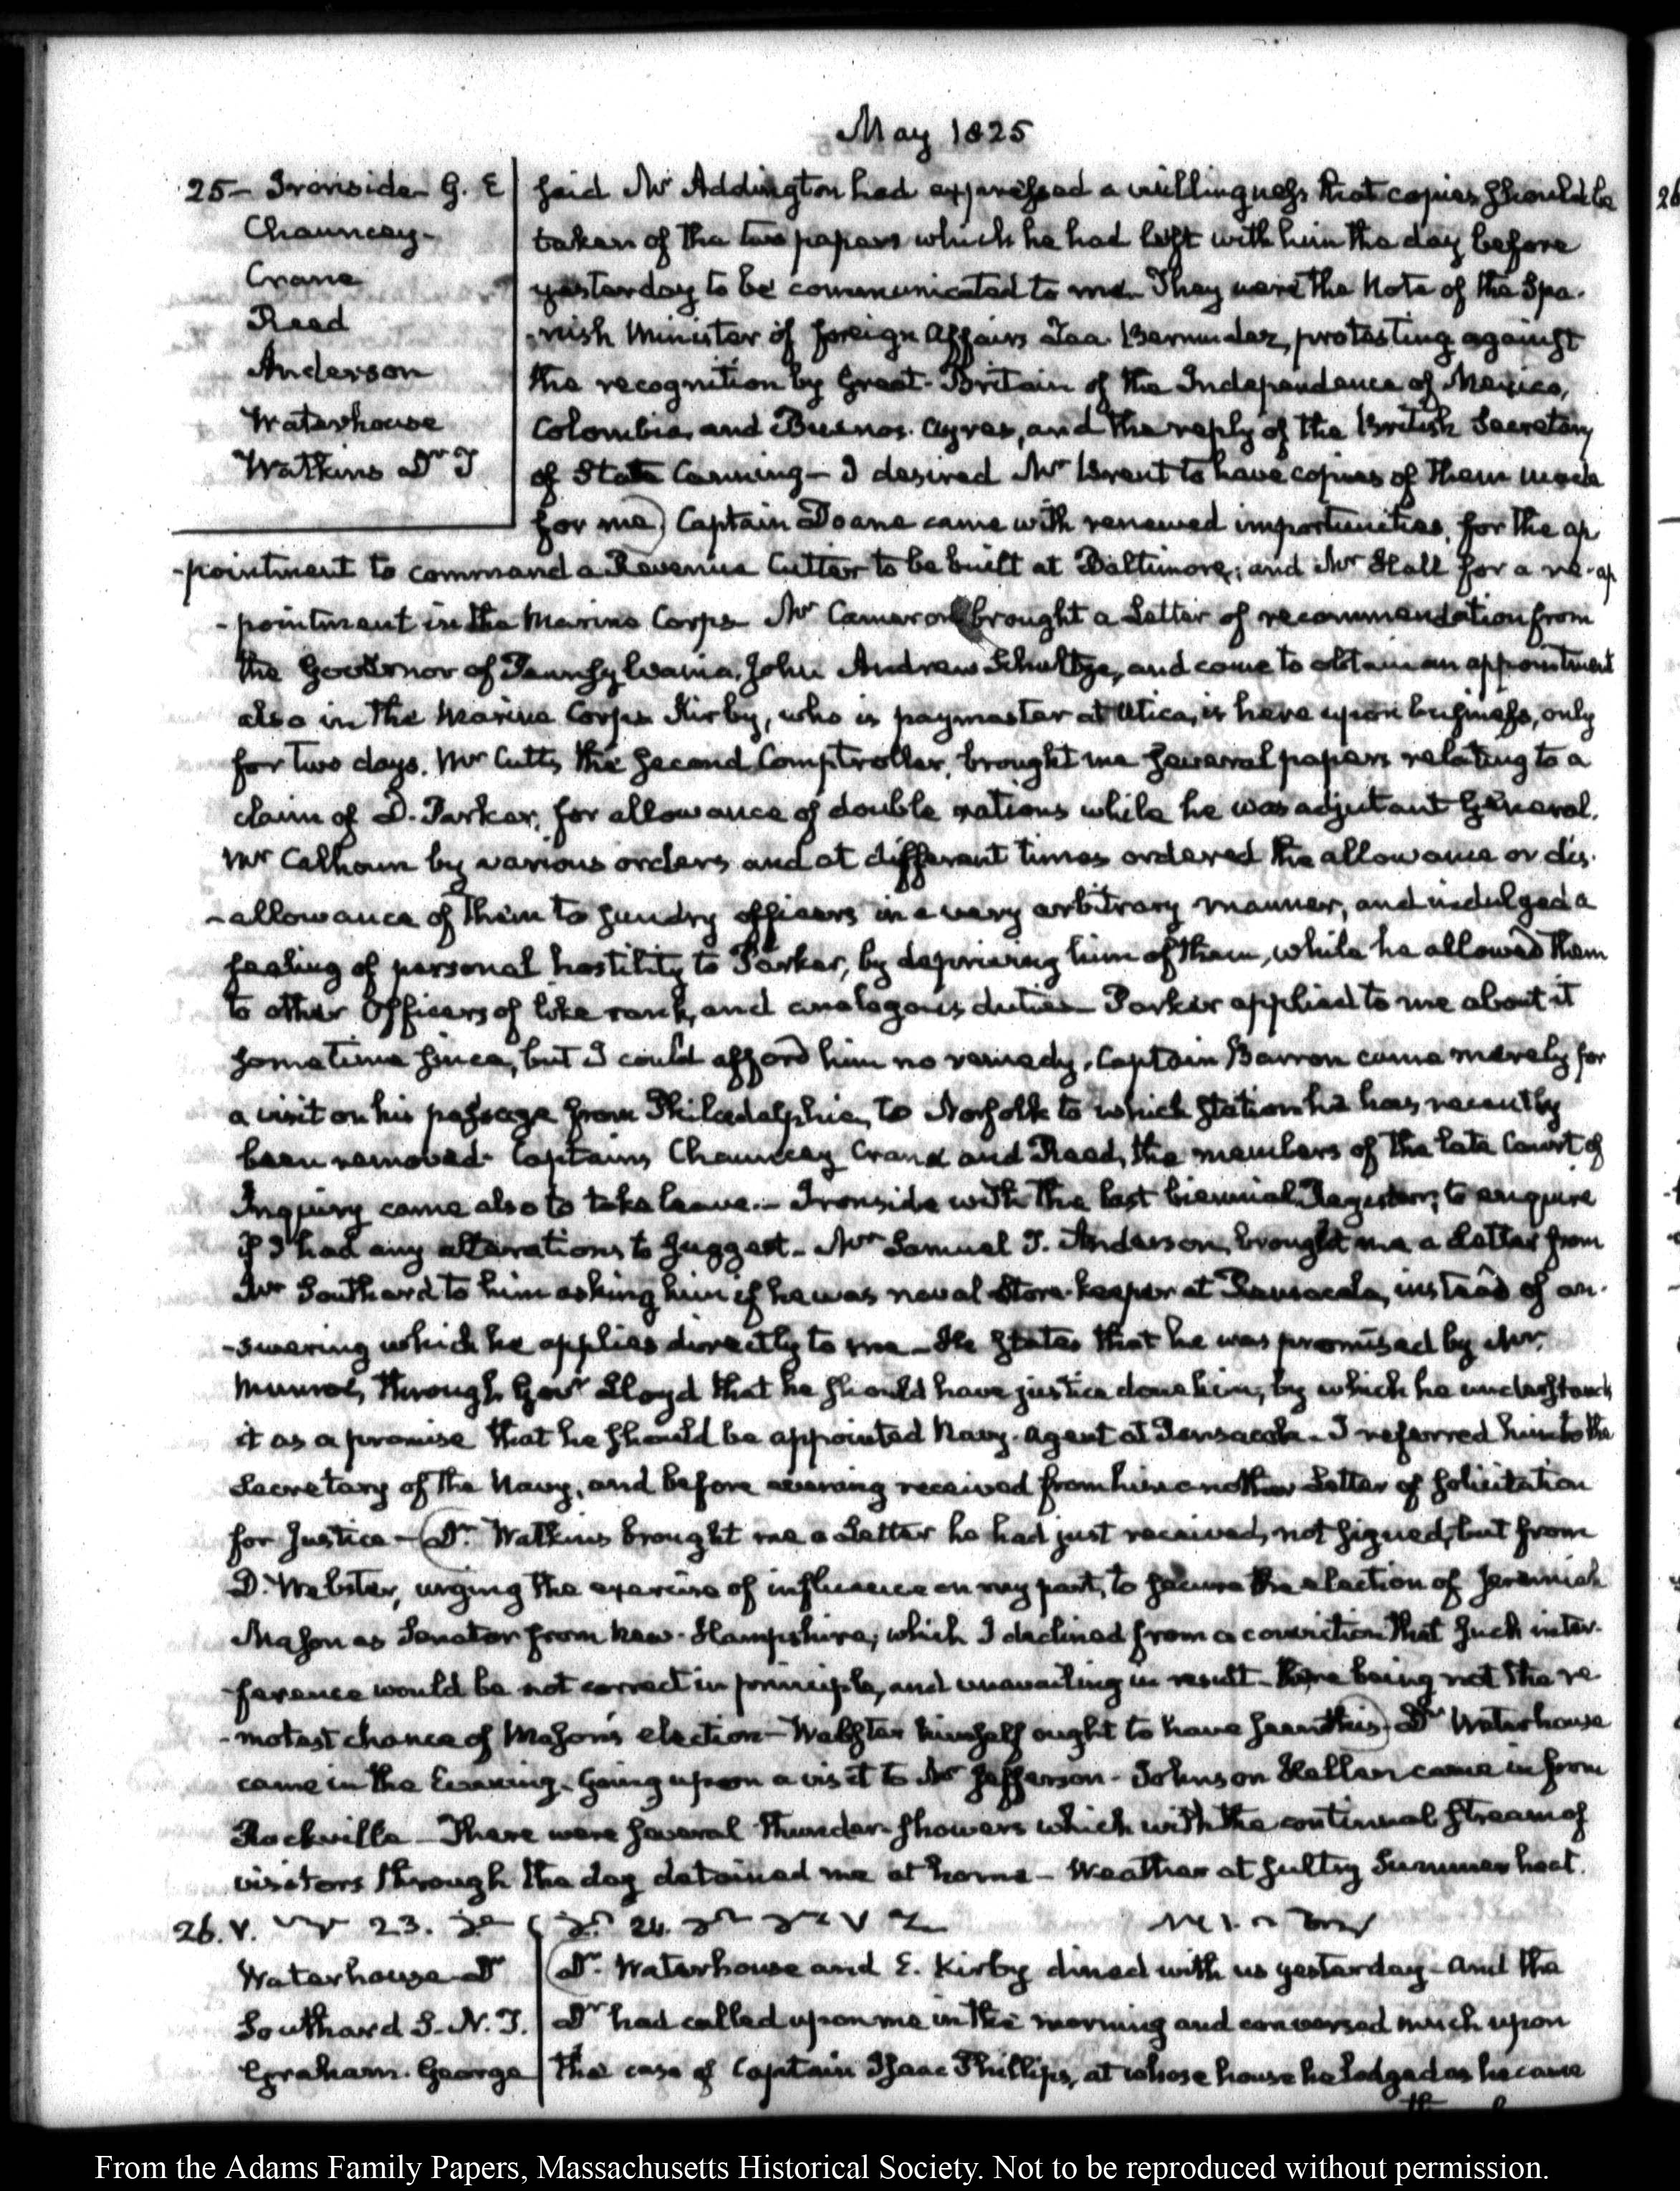 May 1825
25 - Ironside G. E
Chauncey -
Crane
Reed
Anderson
Waterhouse
Watkins Dr T
said Mr Addington had expressed a willingness that copies should be
taken of the two papers which he had left with him the day before
yesterday to be communicated to me. They were the Note of the Spa-
-nish Minister of foreign Affairs Zea Bermudez, protesting against
the recognition by Great-Britain of the Independence of Mexico,
Colombia, and Buenos-Ayres, and the reply of the British Secretary
of State Canning - I desired Mr Brent to have copies of them made
for me) Captain Doane came with renewed importunities, for the ap
-pointment to command a Revenue Cutter to be built at Baltimore; and Mr Hall for a re-ap
-pointment in the Marine Corps - Mr Cameron brought a Letter of recommendation from
the Governor of Pennsylvania, John Andrew Schultze, and come to obtain an appointment
also in the Marine Corps. Kirby, who is paymaster at Utica, is here upon business, only
for two days. Mr Cutts, the second Comptroller, brought me several papers relating to a
claim of D. Parker, for allowance of double rations while he was adjutant General.
Mr Calhoun by various orders and at different times ordered the allowance or dis-
-allowance of them to sundry officers in a very arbitrary manner, and indulged a
feeling of personal hostility to Parker, by depriving him of them, while he allowed them
to other Officers of like rank, and analogous duties - Parker applied to me about it
sometime since, but I could afford him no remedy. Captain Barron came merely for
a visit on his passage from Philadelphia, to Norfolk to which station he has recently
been removed - Captains Chauncey Crane and Reed, the members of the late Court of
Inquiry came also to take leave. - Ironside with the last biennial Register; to enquire
if I had any alterations to suggest - Mr Samuel T. Anderson, brought me a Letter from
Mr Southard to him asking him if he was naval Store-keeper at Pensacola, instead of an-
-swering which he applies directly to me - He states that he was promised by Mr.
Munroe, through Govr Lloyd that he should have justice done him, by which he understands
it as a promise that he should be appointed Navy-Agent at Pensacola - I referred him to the
Secretary of the Navy, and before evening received from him another Letter of solicitation
for Justice - (Dr. Watkins brought me a Letter he had just received, not signed, but from
D. Webster, urging the exercise of influence on my part, to secure the election of Jeremiah
Mason as Senator from New-Hampshire; which I declined from a conviction that such inter-
-ference would be not correct in principle, and unavailing in result - there being not the re
-motest chance of Mason's election - Webster himself ought to have seen this) Dr Waterhouse
came in the Evening. Going upon a visit to Mr Jefferson - Johnson Hellen came in from
Rockville - There were several thunder-showers which with the continual stream of
visitors through the day detained me at home - Weather at sultry Summer heat.
26. V. 23. 24.
Waterhouse Dr
Southard S. N. S.
Graham. George
(Dr. Waterhouse and E. Kirby dined with us yesterday - And the
Dr had called upon me in the morning and conversed much upon
the case of Captain Isaac Phillips, at whose house he lodged as he came
From the Adams Family Papers, Massachusetts Historical Society. Not to be reproduced without permission.